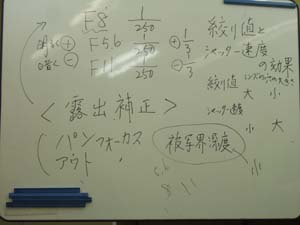 F8 1/250
明るく ⊕ F5.6 1/250 ⊕ 1/3
暗く ⊖ F11 1/250 ⊖ 1/3
<露出補正>
パンフォーカス
アウト 〃
絞り値と
シャッター速度
の効果
絞り値
大 小
シャッター速度
小 大
被写界深度
小
5.6
8 11